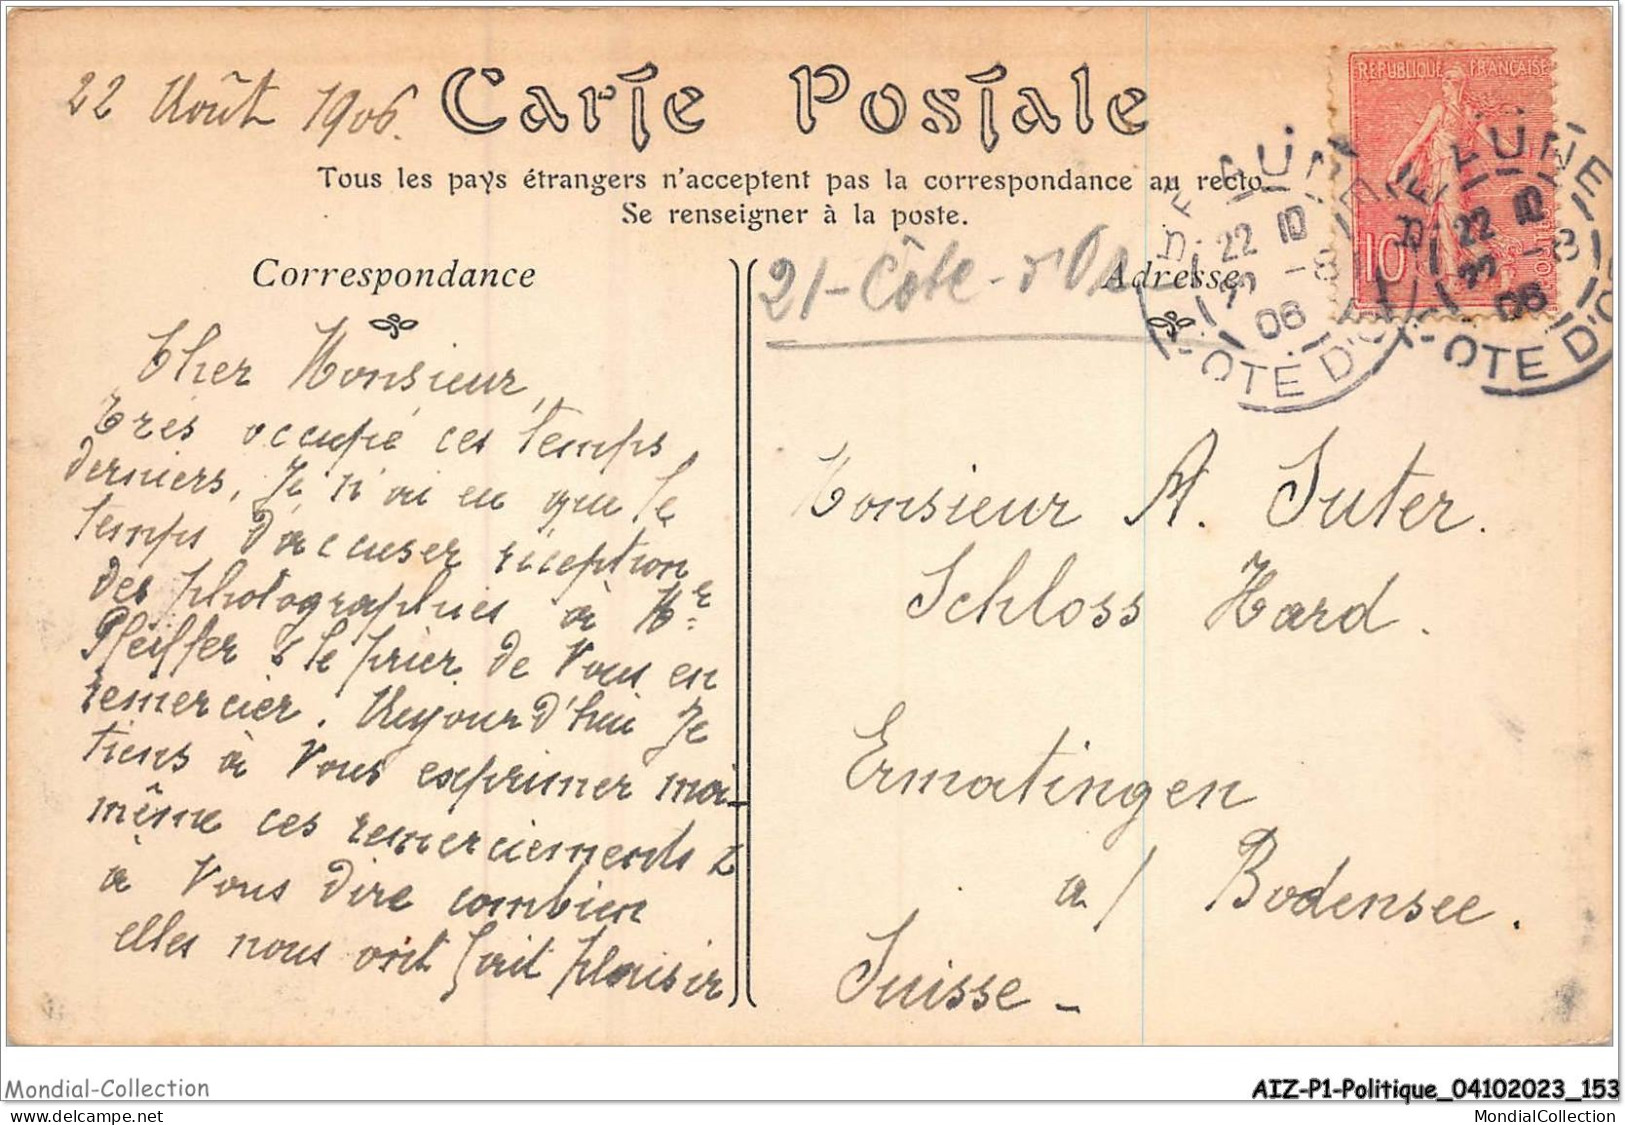 22 Août 1906.
Carte Postale
Tous les pays étrangers n'acceptent pas la correspondance au recto
Se renseigner à la poste.
Correspondance
Cher Monsieur,
Très occupé ces temps
derniers, Je n'ai eu que le
temps d'accuser réception
des photographies à Mr
Pfeiffer & le prier de Vous en
remercier. Aujourd'hui Je
tiens à Vous exprimer moi-
même ces remerciements &
à Vous dire combien
elles nous ont fait plaisir
21-Côte-d'Or
Adresse
Monsieur A. Suter.
Schloss Hard.
Ermatingen
a/ Bodensee.
Suisse-
RÉPUBLIQUE FRANÇAISE
10
POSTES
BEAUNE
22
8
06
CÔTE D'OR
BEAUNE
22
8
06
CÔTE D'OR
Mondial-Collection
AIZ-P1-Politique_04102023_153
www.delcampe.net
MondialCollection